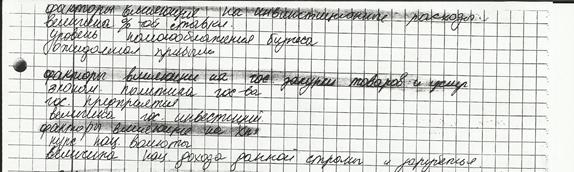 факторы влияющие на инвестиционные расходы
величина % ой ставки
уровень налогообложения бизнеса
ожидаемая прибыль
факторы влияющие на гос закупки товаров и услуг
эконом. политика гос-ва
гос. предприятия
величина гос. инвестиций
факторы влияющие на
курс нац. валюты
величина нац. дохода данной страны и зарубежья